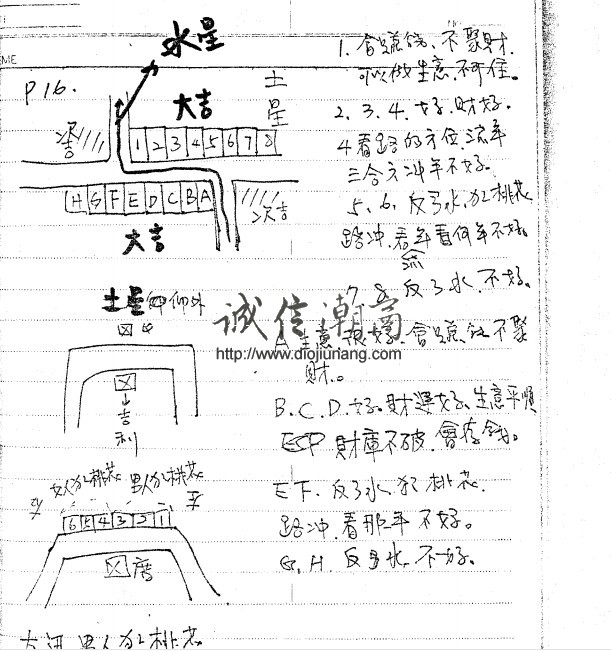 P16.
水星
大吉
土星
1 2 3 4 5 6 7 8
H G F E D C B A
大吉
次吉
土星
吉利
女人犯桃花 男人犯桃花
6 5 4 3 2 1
男人犯桃花
1. 會賺錢、不聚財.
可以做生意.不可住。
2. 3. 4. 好.財好。
4看路的方位流年
三合方冲年不好。
5. 6. 反弓水.犯桃花
路冲.看流年看何年不好.
7. 8. 反弓水.不好。
A 生意很好.會賺錢不聚
財。
B. C. D. 好.財運好.生意平順
財庫不破.會存錢。
E F. 反弓水犯桃花.
路冲.看那年不好。
G. H. 反弓水.不好。
誠信潮商
http://www.diojiuriang.com/